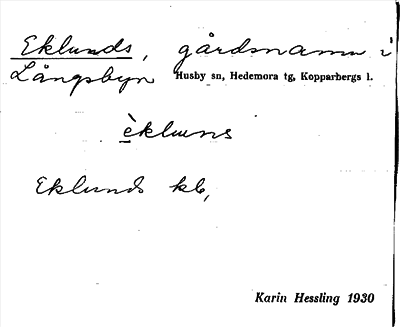 Eklunds, gårdsnamn i
Långsbyn Husby sn, Hedemora tg, Kopparbergs l.
èkluns
Eklunds kb,
Karin Hessling 1930